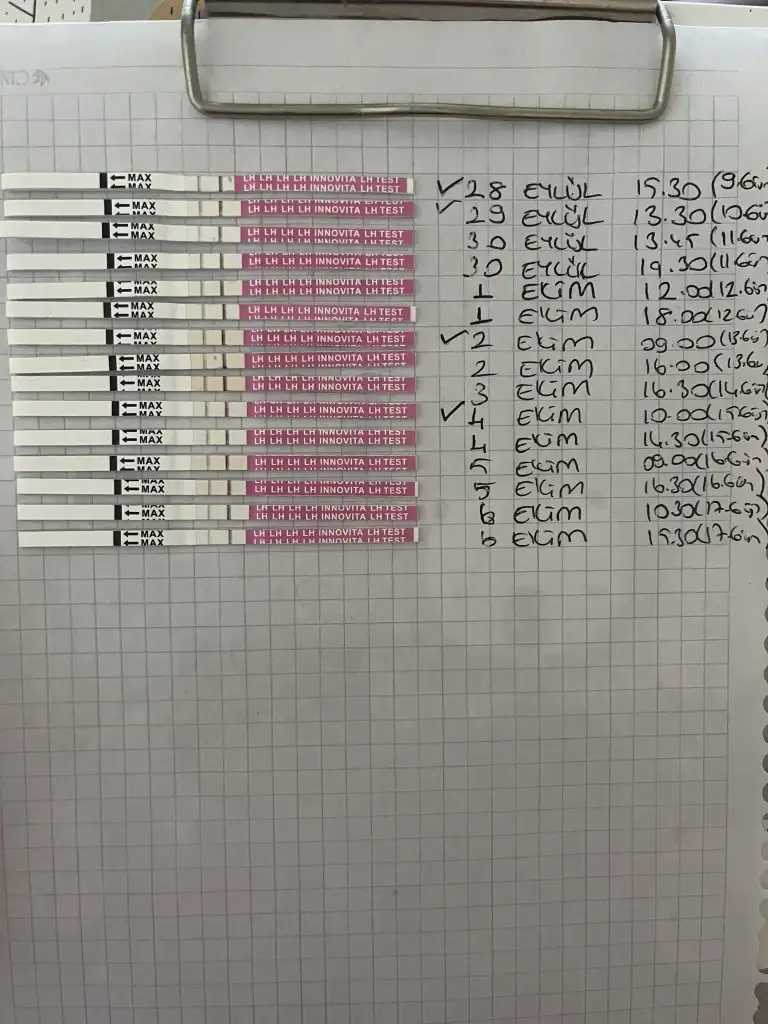 ←MAX LH LH LH LH INNOVITA LH TEST ✓ 28 EYLÜL 15.30 (9.Gün
←MAX LH LH LH LH INNOVITA LH TEST ✓ 29 EYLÜL 13.30 (10.Gün
←MAX LH LH LH LH INNOVITA LH TEST 30 EYLÜL 13.45 (11.Gün
←MAX LH LH LH LH INNOVITA LH TEST 30 EYLÜL 19.30 (11.Gün
←MAX LH LH LH LH INNOVITA LH TEST 1 EKİM 12.00 (12.Gün
←MAX LH LH LH LH INNOVITA LH TEST 1 EKİM 18.00 (12.Gün)
←MAX LH LH LH LH INNOVITA LH TEST ✓ 2 EKİM 09.00 (13.Gün)
←MAX LH LH LH LH INNOVITA LH TEST 2 EKİM 16.00 (13.Gün
←MAX LH LH LH LH INNOVITA LH TEST 3 EKİM 16.30 (14.Gün
←MAX LH LH LH LH INNOVITA LH TEST ✓ 4 EKİM 10.00 (15.Gün)
←MAX LH LH LH LH INNOVITA LH TEST 4 EKİM 14.30 (15.Gün)
←MAX LH LH LH LH INNOVITA LH TEST 5 EKİM 09.00 (16.Gün)
←MAX LH LH LH LH INNOVITA LH TEST 5 EKİM 16.30 (16.Gün)
←MAX LH LH LH LH INNOVITA LH TEST 6 EKİM 10.30 (17.Gün)
←MAX LH LH LH LH INNOVITA LH TEST 6 EKİM 15.30 (17.Gün)